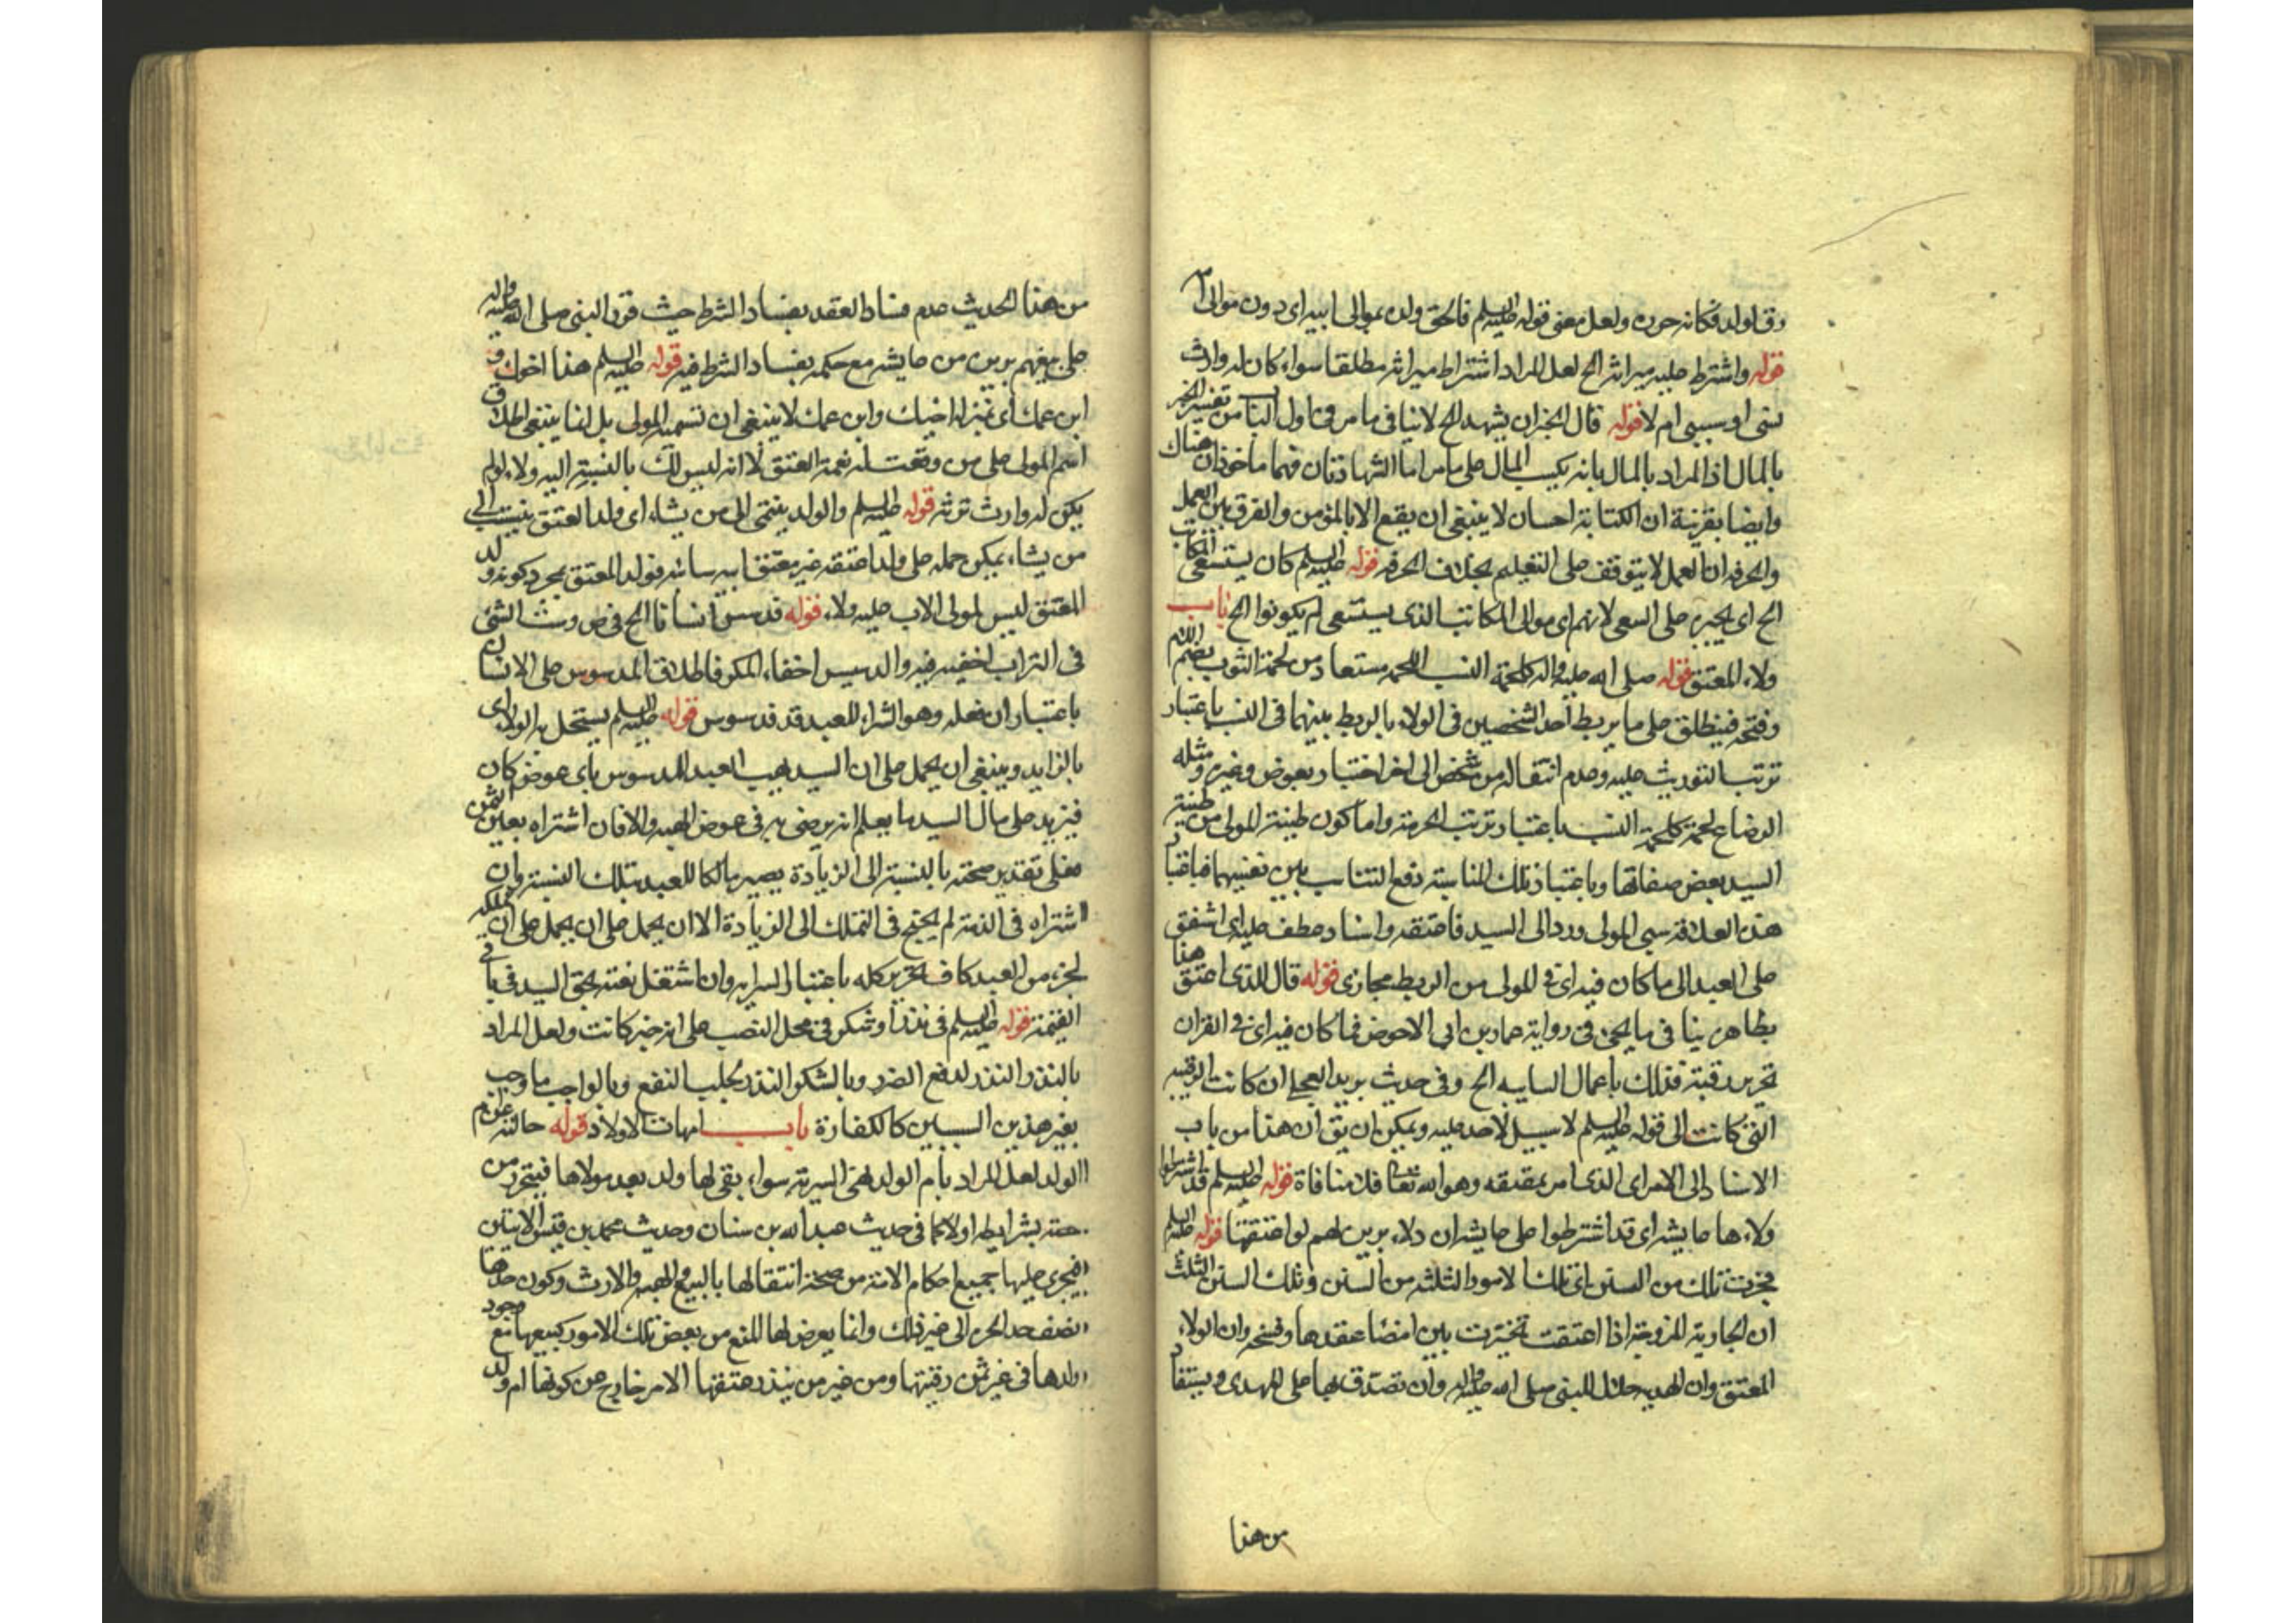 وقاولد فكانه حرره ولعل معنى قوله عليه السلم فالحق ولده بموالى ابيه اى دون موالى
قوله واشترط عليه ميراثه الخ لعل المراد اشتراط ميراثه مطلقا سواء كان له وارث
نسبى او سببى ام لا قوله قال الخير ان يشهد الخ لا ينافى ما مر فى اول الباب من تفسير الخير
بالمال اذ المراد بالمال بانه يكسب المال على ما مر اما الشهادتان فهما ماخوذان هناك
وايضا بقرينة ان الكتابة احسان لا ينبغى ان يقع الا بالمؤمن والفرق بين العمل
والحرفه ان العمل لا يتوقف على التعليم بخلاف الحرفه قوله عليه السلم كان يستسعى المكاتب
الخ اى يجبره على السعى لانهم اى موالى المكاتب الذى يستسعى لم يكونوا الخ باب
ولاء المعتق قوله صلى الله عليه واله كلحمة النسب اللحمه مستعار من لحمة الثوب بضم اللام
وفتحه فينطلق على ما يربط احد الشخصين فى الولاء بالربط بينهما فى النسب باعتبار
ترتب التوريث عليه وعدم انتقاله من شخص الى اخر اختيار بعوض وغيره ومثله
الرضاع لحمة كلحمة النسب باعتبار ترتب الحرمة واما كون طينة المولى من طينة
السيد بعض صفاتها وباعتبار تلك المناسبة دفع التناسب بين نفسيهما فباعتبار
هذه العلاقة سمى المولى ورد الى السيد فاعتقه واسناد عطف عليه اى اشفق
على العبد الى ما كان فيه اى فى المولى من الربط مجازى قوله قال للذى اعتق هذا
بظاهره ينافى ما يجئ فى رواية عمار بن ابى الاحوص فما كان فيه اى فى القران
تحرير رقبة فذلك يا عمار السايبه الخ وفى حديث بريد العجلى ان كانت الرقبه
التى كانت الى قوله عليه السلم لا سبيل لاحد عليه ويمكن ان يق ان هذا من باب
الاسناد الى الامر اى الذى امر بعتقه وهو الله تعا فلا منافاة قوله عليه السلم قد اشترطوا
ولاءها عايشه اى قد اشترطوا على عايشه ان ولاء بريره لهم لو اعتقتها قوله عليه السلم
فجرت تلك من السنن اى تلك الامور الثلثه من السنن وتلك السنن الثلث
ان الجارية المزوجة اذا اعتقت تخيرت بين امضاء عقدها وفسخه وان الولاء
المعتق وان الهديه حلال للنبى صلى الله عليه واله وان تصدق بها على المهدى ويستفاد
من هذا
من هذا الحديث عدم فساد العقد بفساد الشرط حيث قرر النبى صلى الله عليه واله
على بيعهم بريره من عايشه مع حكمه بفساد الشرط فيه قوله عليه السلم هذا اخوك و
ابن عمك اى بمنزلة اخيك وابن عمك لا ينبغى ان تسميه المولى بل انما ينبغى اطلاق
اسم المولى على من وقعت له نعمة العتق الا انه ليس لك بالنسبة اليه ولاء لو لم
يكن له وارث ترثه قوله عليه السلم والولد ينتمى الى من يشاء اى ولد المعتق ينتسب الى
من يشاء يمكن حمله على ولد اعتقه غير معتق ابيه سائبه فولد المعتق بمجرد كونه ولد
المعتق ليس لمولى الاب عليه ولاء قوله قد سس انسانا الخ فى ص دسست الشئ
فى التراب اخفيته فيه والدسيس اخفاء المكر فاطلاق المدسوس على الانسان
باعتبار ان فعله وهو الشراء للعبد قد دسوس قوله عليه السلم يستحل به الولاء اى
بالزايد وينبغى ان يحمل على ان السيد يهب العبد المدسوس باى عوض كان
فيزيد على مال السيد ما يعلم انه يرضى به فى عوض الهبه والا فان اشتراه بعين الثمن
فعلى تقدير صحته بالنسبة الى الزيادة يصير مالكا للعبد بتلك النسبة وان
اشتراه فى الذمة لم يحتج فى التملك الى الزيادة الا ان يحمل على ان يحمل على ان تملكه
لجزء من العبد كاف فى تحرير كله باعتبار السرايه وان اشتغل ذمته بحق السيد فى باقى
القيمة قوله عليه السلم فى نذر او شكر فى محل النصب على انه خبر كانت ولعل المراد
بالنذر النذر لدفع الضرر وبالشكر النذر لجلب النفع وبالواجب ما وجب
بغير هذين السببين كالكفارة باب امهات الاولاد قوله حالته عن ام
الولد لعل المراد بام الولد هى السرية سواء بقى لها ولد بعد مولاها فيتحرر من
حصته بشرايطه او لا كما فى حديث عبد الله بن سنان وحديث محمد بن قيس الاتيين
فيجرى عليها جميع احكام الامة من صحة انتقالها بالبيع والهبه والارث وكون حدها
نصف حد الحره الى غير ذلك وانما يعرض لها المنع من بعض تلك الامور كبيعها مع وجود
ولدها فى غير ثمن رقبتها ومن غير من ينذر عتقها الامر خارج عن كونها ام ولد